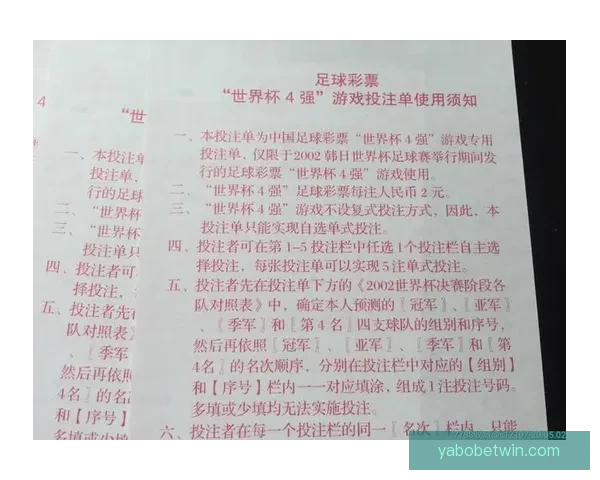 足球彩票
“世界杯 4 强”游戏投注单使用须知
一、本投注单为中国足球彩票“世界杯 4 强”游戏专用
投注单，仅限于2002 韩日世界杯足球赛举行期间发
行的足球彩票“世界杯 4 强”游戏使用。
二、“世界杯 4 强”足球彩票每注人民币 2 元。
三、“世界杯 4 强”游戏不设复式投注方式，因此，本
投注单只能实现自选单式投注。
四、投注者可在第 1-5 投注栏中任选 1个投注栏自主选
择投注，每张投注单可以实现 5 注单式投注。
五、投注者先在投注单下方的《2002世界杯决赛阶段各
队对照表》中，确定本人预测的〖冠军〗、〖亚军〗
、〖季军〗和〖第 4 名〗四支球队的组别和序号，
然后再依照〖冠军〗、〖亚军〗、〖季军〗和〖第
4名〗的名次顺序，分别在投注栏中对应的【组别】
和【序号】栏内一一对应填涂，组成 1 注投注号码。
多填或少填均无法实施投注。
六、投注者在每一个投注栏的同一〖名次〗栏内，只能
4
“世
一、本投注单
投注单，
行的足球
二、“世界杯
三、“世界杯
投注单只
四、投注者可
择投注，
五、投注者先在
队对照表》
、〖季军
然后再依照
4名〗的名
和【序号】
多填或少填
yabobetwin.com